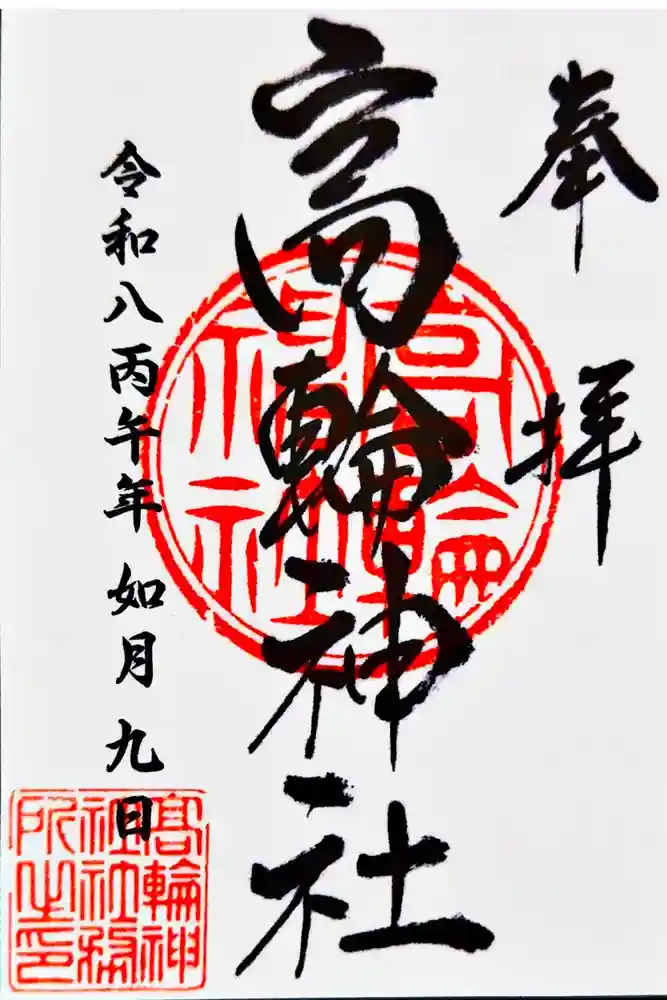 奉拝
高輪神社
令和八丙午年 如月 九日
高輪
神社
髙輪神
社社務
所之印